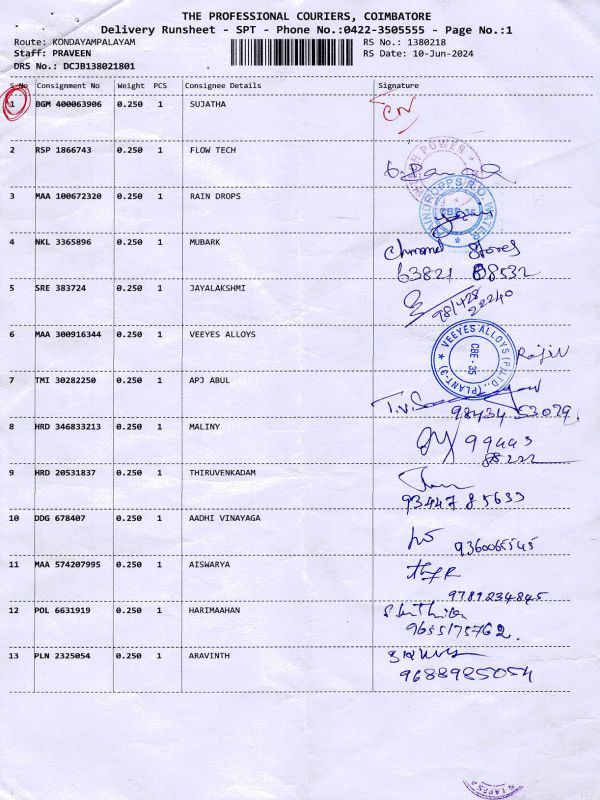 THE PROFESSIONAL COURIERS, COIMBATORE
Delivery Runsheet - SPT - Phone No.:0422-3505555 - Page No.:1
Route: KONDAYAMPALAYAM RS No.: 1380218
Staff: PRAVEEN RS Date: 10-Jun-2024
DRS No.: DCJB138021801
S.No Consignment No Weight PCS Consignee Details Signature
1 BGM 400063906 0.250 1 SUJATHA
2 RSP 1866743 0.250 1 FLOW TECH
3 MAA 100672320 0.250 1 RAIN DROPS
CBE-35
4 NKL 3365896 0.250 1 MUBARK
Stores
5 SRE 383724 0.250 1 JAYALAKSHMI
6 MAA 300916344 0.250 1 VEEYES ALLOYS
VEEYES ALLOYS (P) LTD., (PLANT-3)
CBE-35
7 TMI 30282250 0.250 1 APJ ABUL
98434 53029
8 HRD 346833213 0.250 1 MALINY
9 HRD 20531837 0.250 1 THIRUVENKADAM
93447 85633
10 DDG 678407 0.250 1 AADHI VINAYAGA
9360065545
11 MAA 574207995 0.250 1 AISWARYA
9789234845
12 POL 6631919 0.250 1 HARIMAAHAN
9655175762.
13 PLN 2325054 0.250 1 ARAVINTH
9688985054